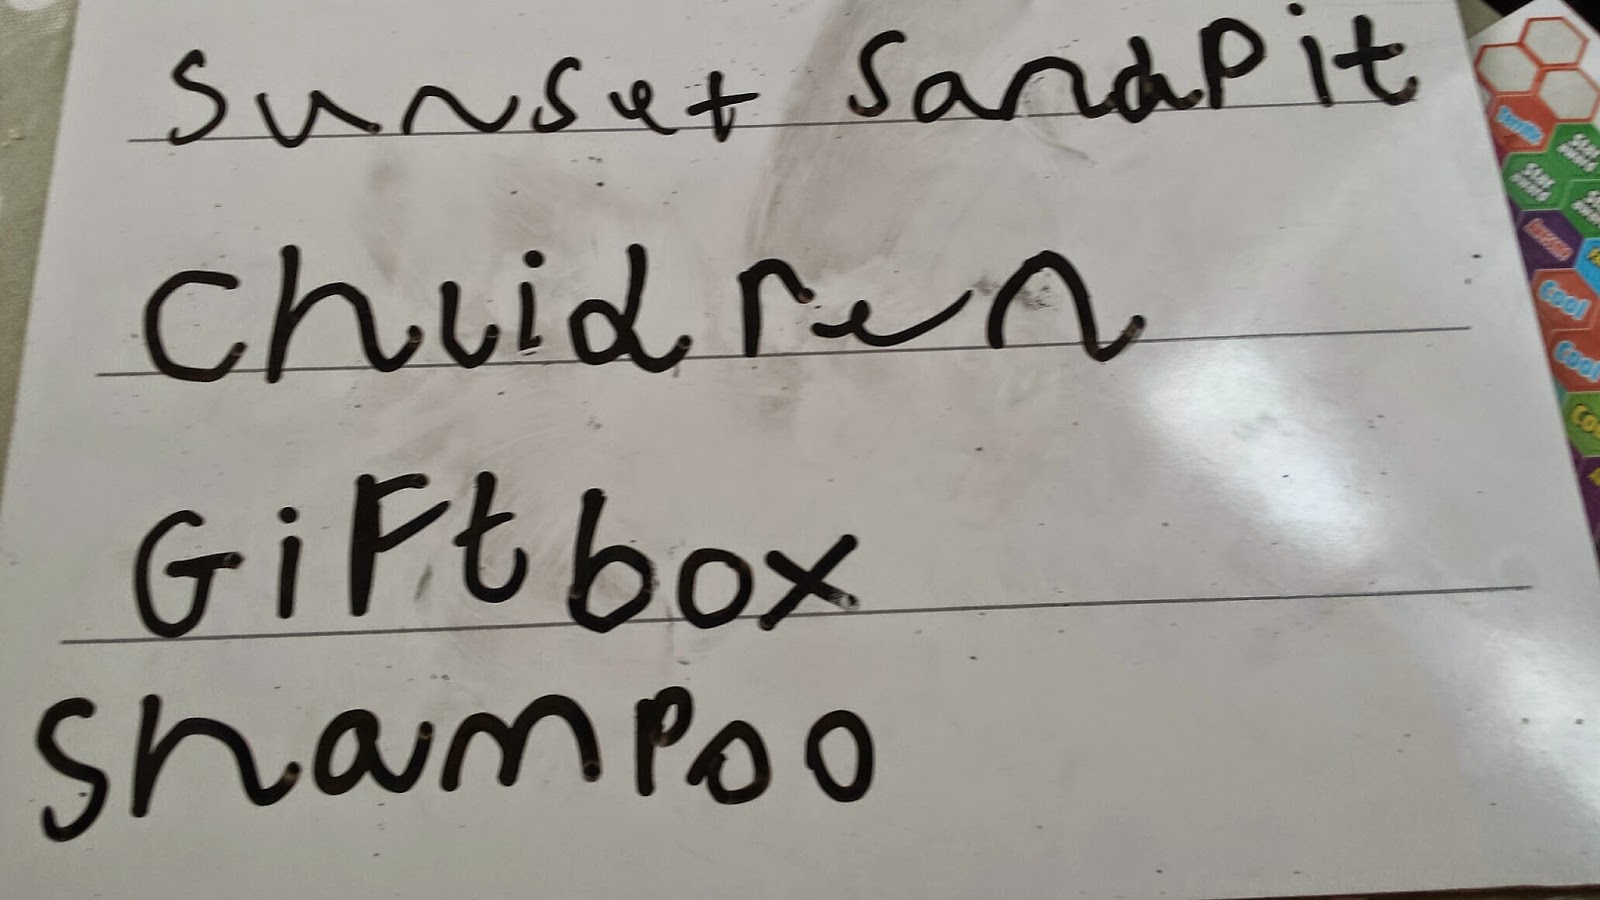 sunset sandPit
Chuidren
GiFtbox
ShamPoo
Cool
Cool